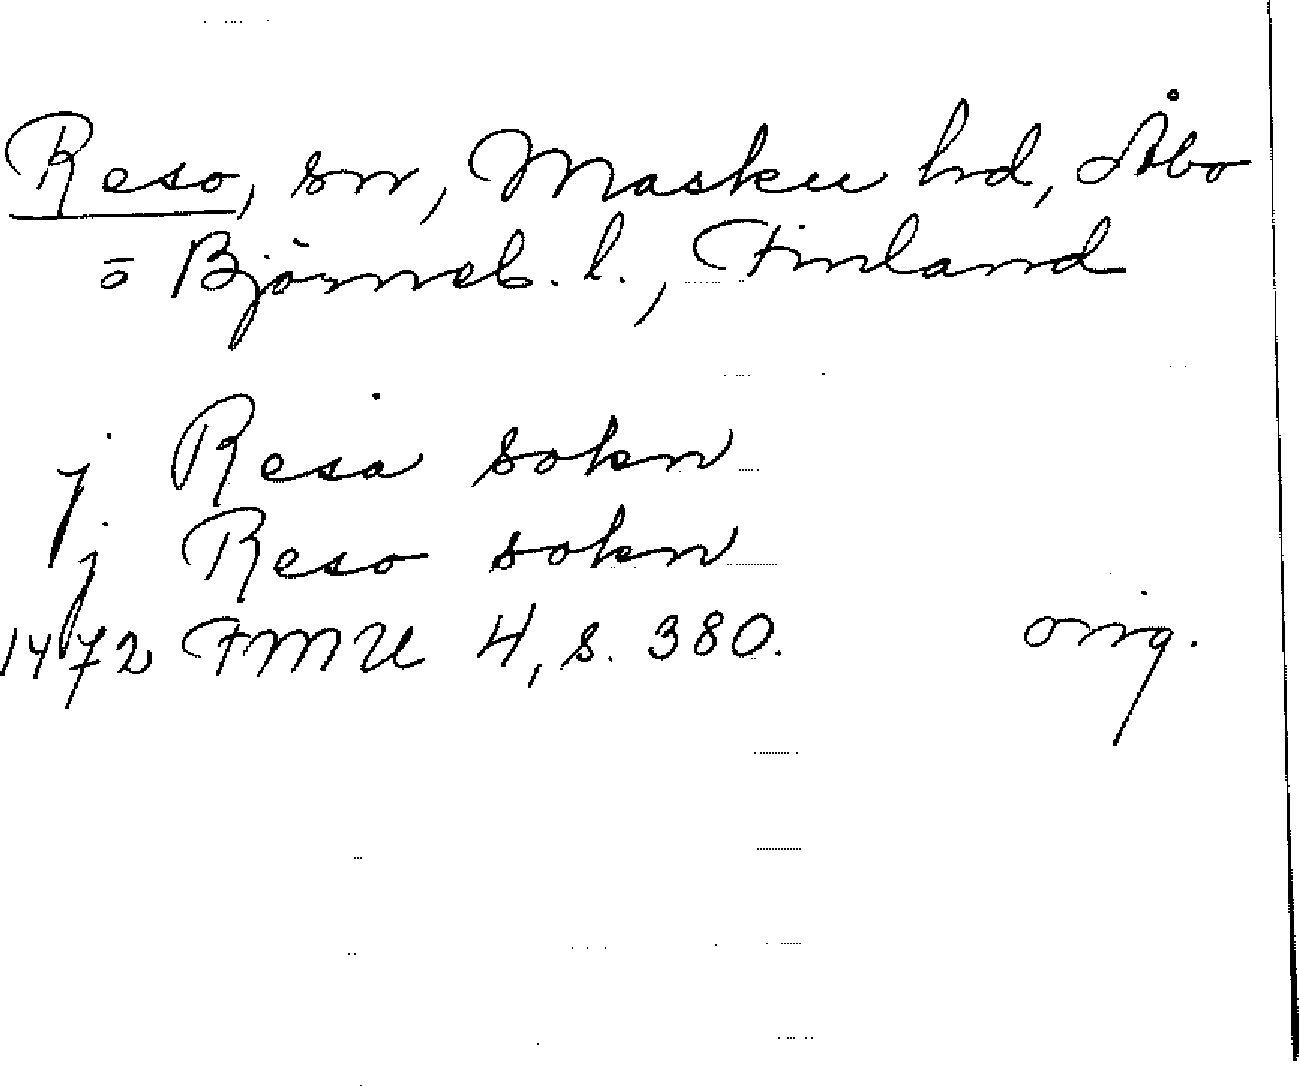 Reso, sn, Masku hd, Åbo
o Björneb. l., Finland
j Resa sokn
j Reso sokn
1472 FMU 4, s. 380. orig.